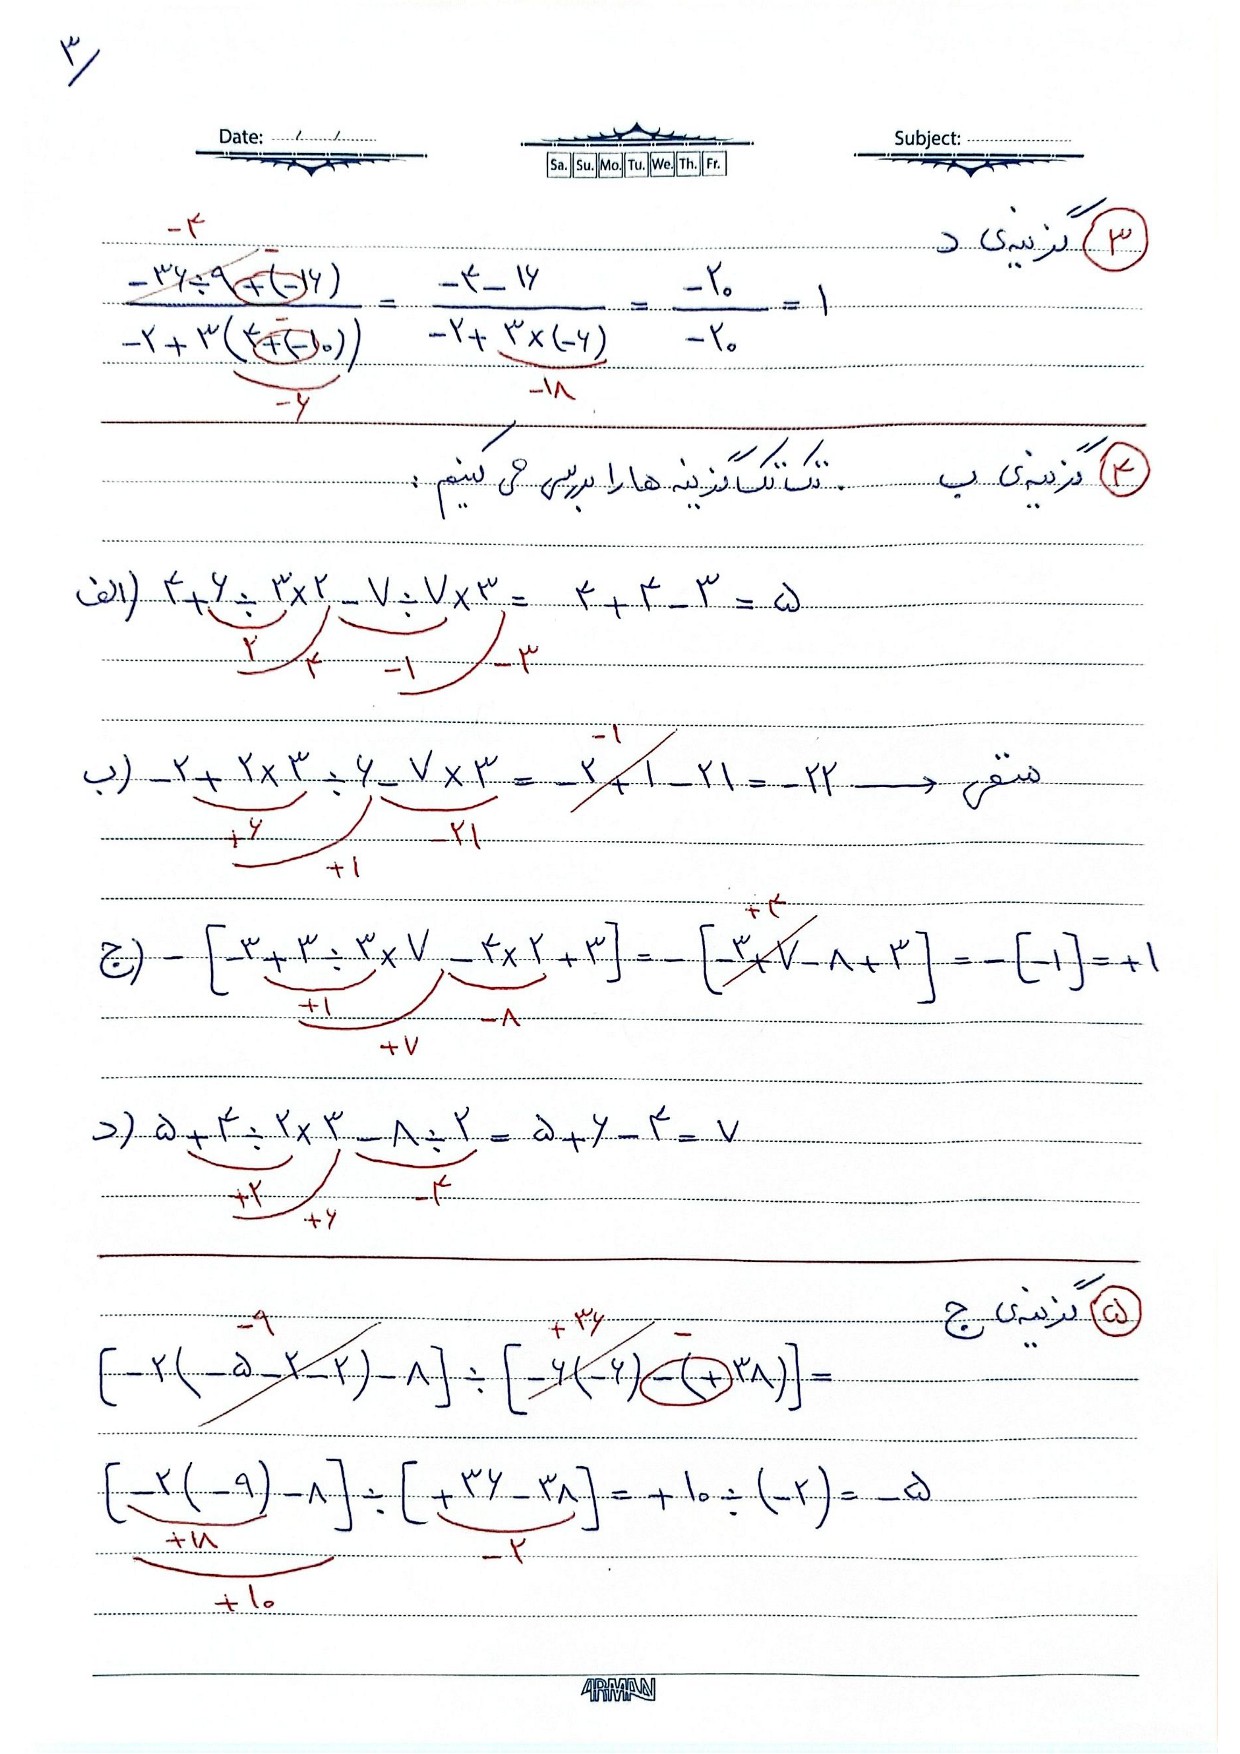 ۳/
Date: ..../..../....
Sa. Su. Mo. Tu. We. Th. Fr.
Subject:
۳ گزینه‌ی د
-۴
-
(-۳۶÷۹+(-۱۶))/(-۲+۳(۴+(-۱۰))) = (-۴-۱۶)/(-۲+۳×(-۶)) = -۲۰/-۲۰ = ۱
-
-۶ -۱۸
۴ گزینه‌ی ب . تک تک گزینه ها را بررسی می کنیم :
الف) ۴+۶÷۳×۲-۷÷۷×۳= ۴+۴-۳=۵
۲ ۴ -۱ -۳
-۱
ب) -۲+۲×۳÷۶-۷×۳=-۲+۱-۲۱=-۲۲ → منفی
+۶ -۲۱
+۱
+۴
ج) -[-۳+۳÷۳×۷-۴×۲+۳]=-[-۳+۷-۸+۳]=-[-۱]=+۱
+۱ -۸
+۷
د) ۵+۴÷۲×۳-۸÷۲=۵+۶-۴=۷
+۲ -۴
+۶
۵ گزینه‌ی ج
-۹ +۳۶ -
[-۲(-۵-۲-۲)-۸]÷[-۶(-۶)-(+۳۸)]=
[-۲(-۹)-۸]÷[+۳۶-۳۸]=+۱۰÷(-۲)=-۵
+۱۸ -۲
+۱۰
ARMAN